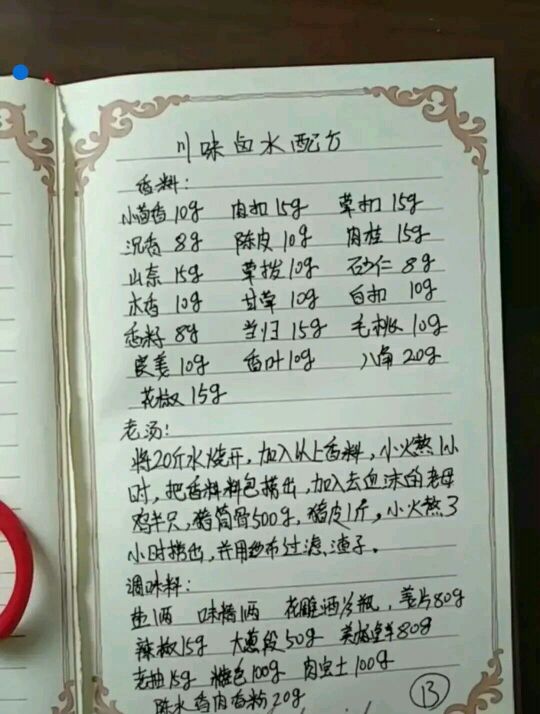 川味卤水配方
香料：
小茴香10g 肉扣15g 草扣15g
沉香8g 陈皮10g 肉桂15g
山奈15g 荜拨10g 砂仁8g
木香10g 甘草10g 白扣10g
香籽8g 当归15g 毛桃10g
良姜10g 香叶10g 八角20g
花椒15g
老汤：
将20斤水烧开，加入以上香料，小火熬1小
时，把香料料包捞出，加入去血沫的老母
鸡半只，猪筒骨500g，猪皮1斤，小火熬3
小时捞出，并用纱布过滤渣子。
调味料：
盐1两 味精1两 花雕酒 瓶，姜片80g
辣椒15g 大葱段50g 80g
老抽15g 糖色100g 肉 100g
陈水香肉香粉20g
13